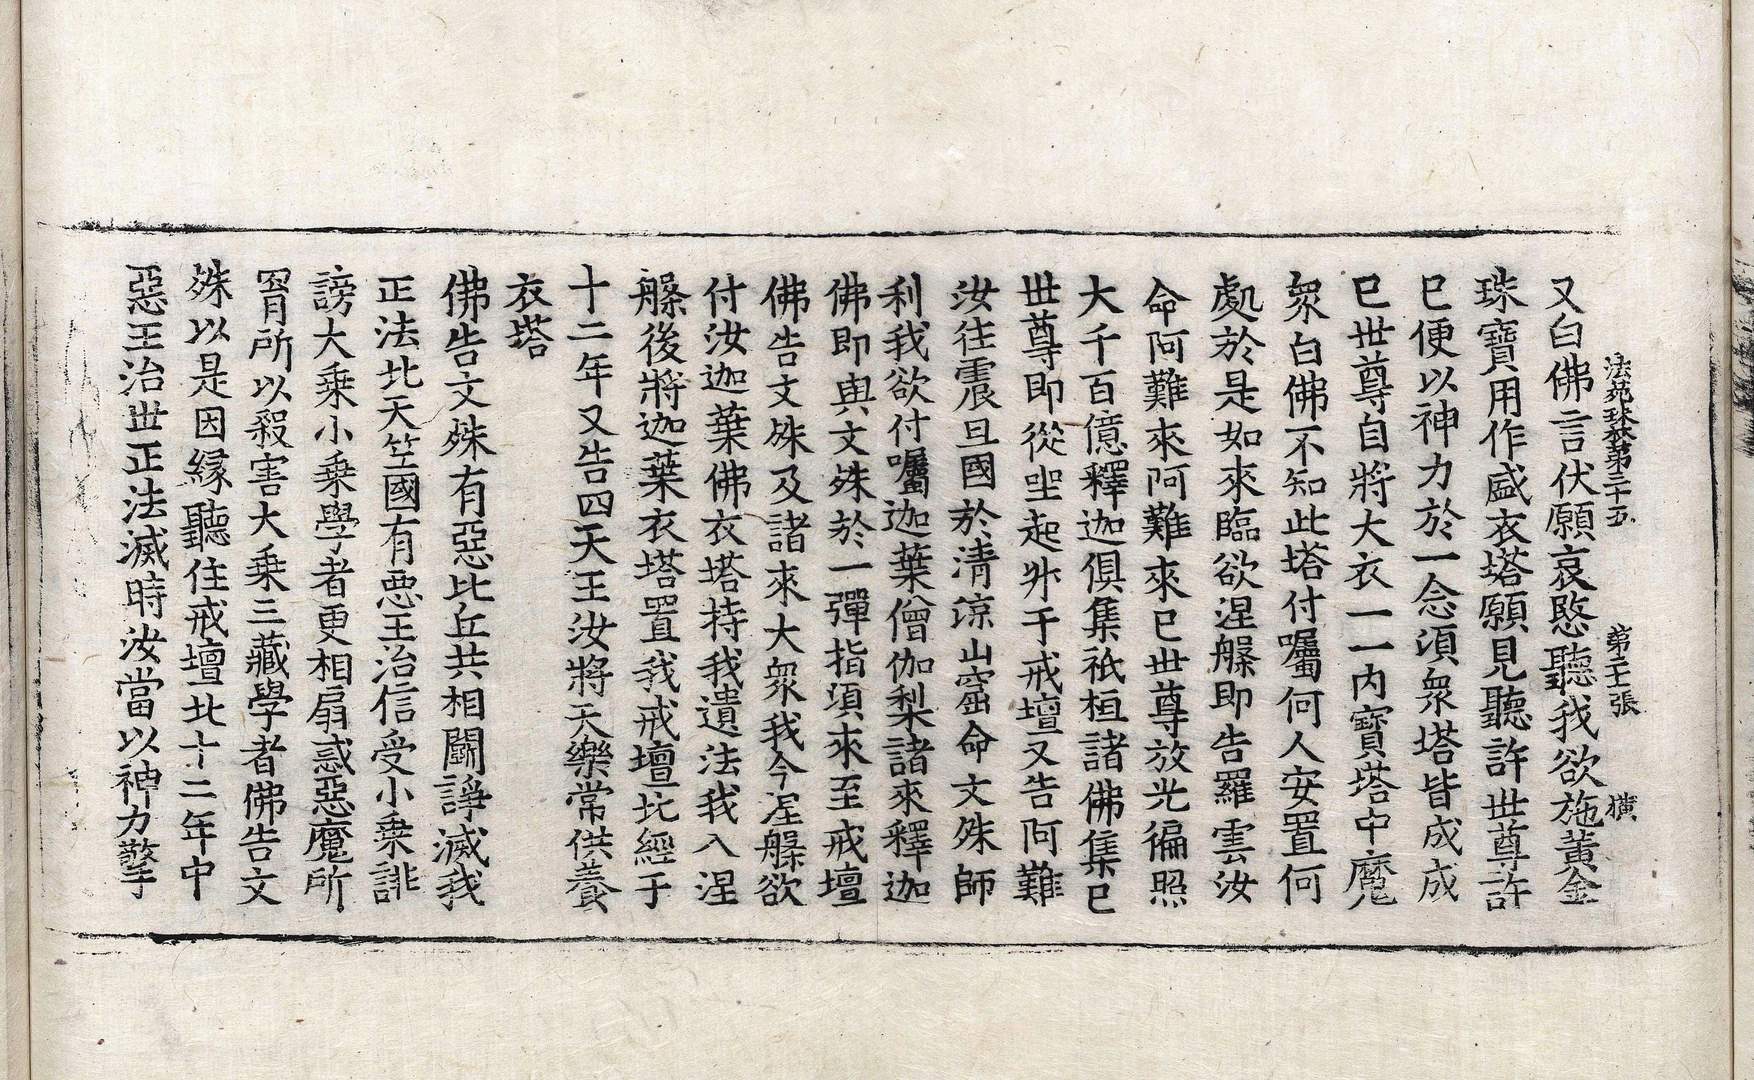 法苑珠林第三十五 第二十張 橫
又白佛言伏願哀愍聽我欲施黃金
珠寶用作盛衣塔願見聽許世尊許
已便以神力於一念須眾塔皆成成
已世尊自將大衣一一內寶塔中魔
眾白佛不知此塔付囑何人安置何
處於是如來臨欲涅槃即告羅雲汝
命阿難來阿難來已世尊放光徧照
大千百億釋迦俱集祇桓諸佛集已
世尊即從坐起升于戒壇又告阿難
汝往震旦國於清涼山窟命文殊師
利我欲付囑迦葉僧伽梨諸來釋迦
佛即與文殊於一彈指須來至戒壇
佛告文殊及諸來大眾我今涅槃欲
付汝迦葉佛衣塔持我遺法我入涅
槃後將迦葉衣塔置我戒壇北經于
十二年又告四天王汝將天樂常供養
衣塔
佛告文殊有惡比丘共相鬪諍滅我
正法北天竺國有惡王治信受小乘誹
謗大乘小乘學者更相扇惑惡魔所
胥所以殺害大乘三藏學者佛告文
殊以是因緣聽住戒壇北十二年中
惡王治世正法滅時汝當以神力擎